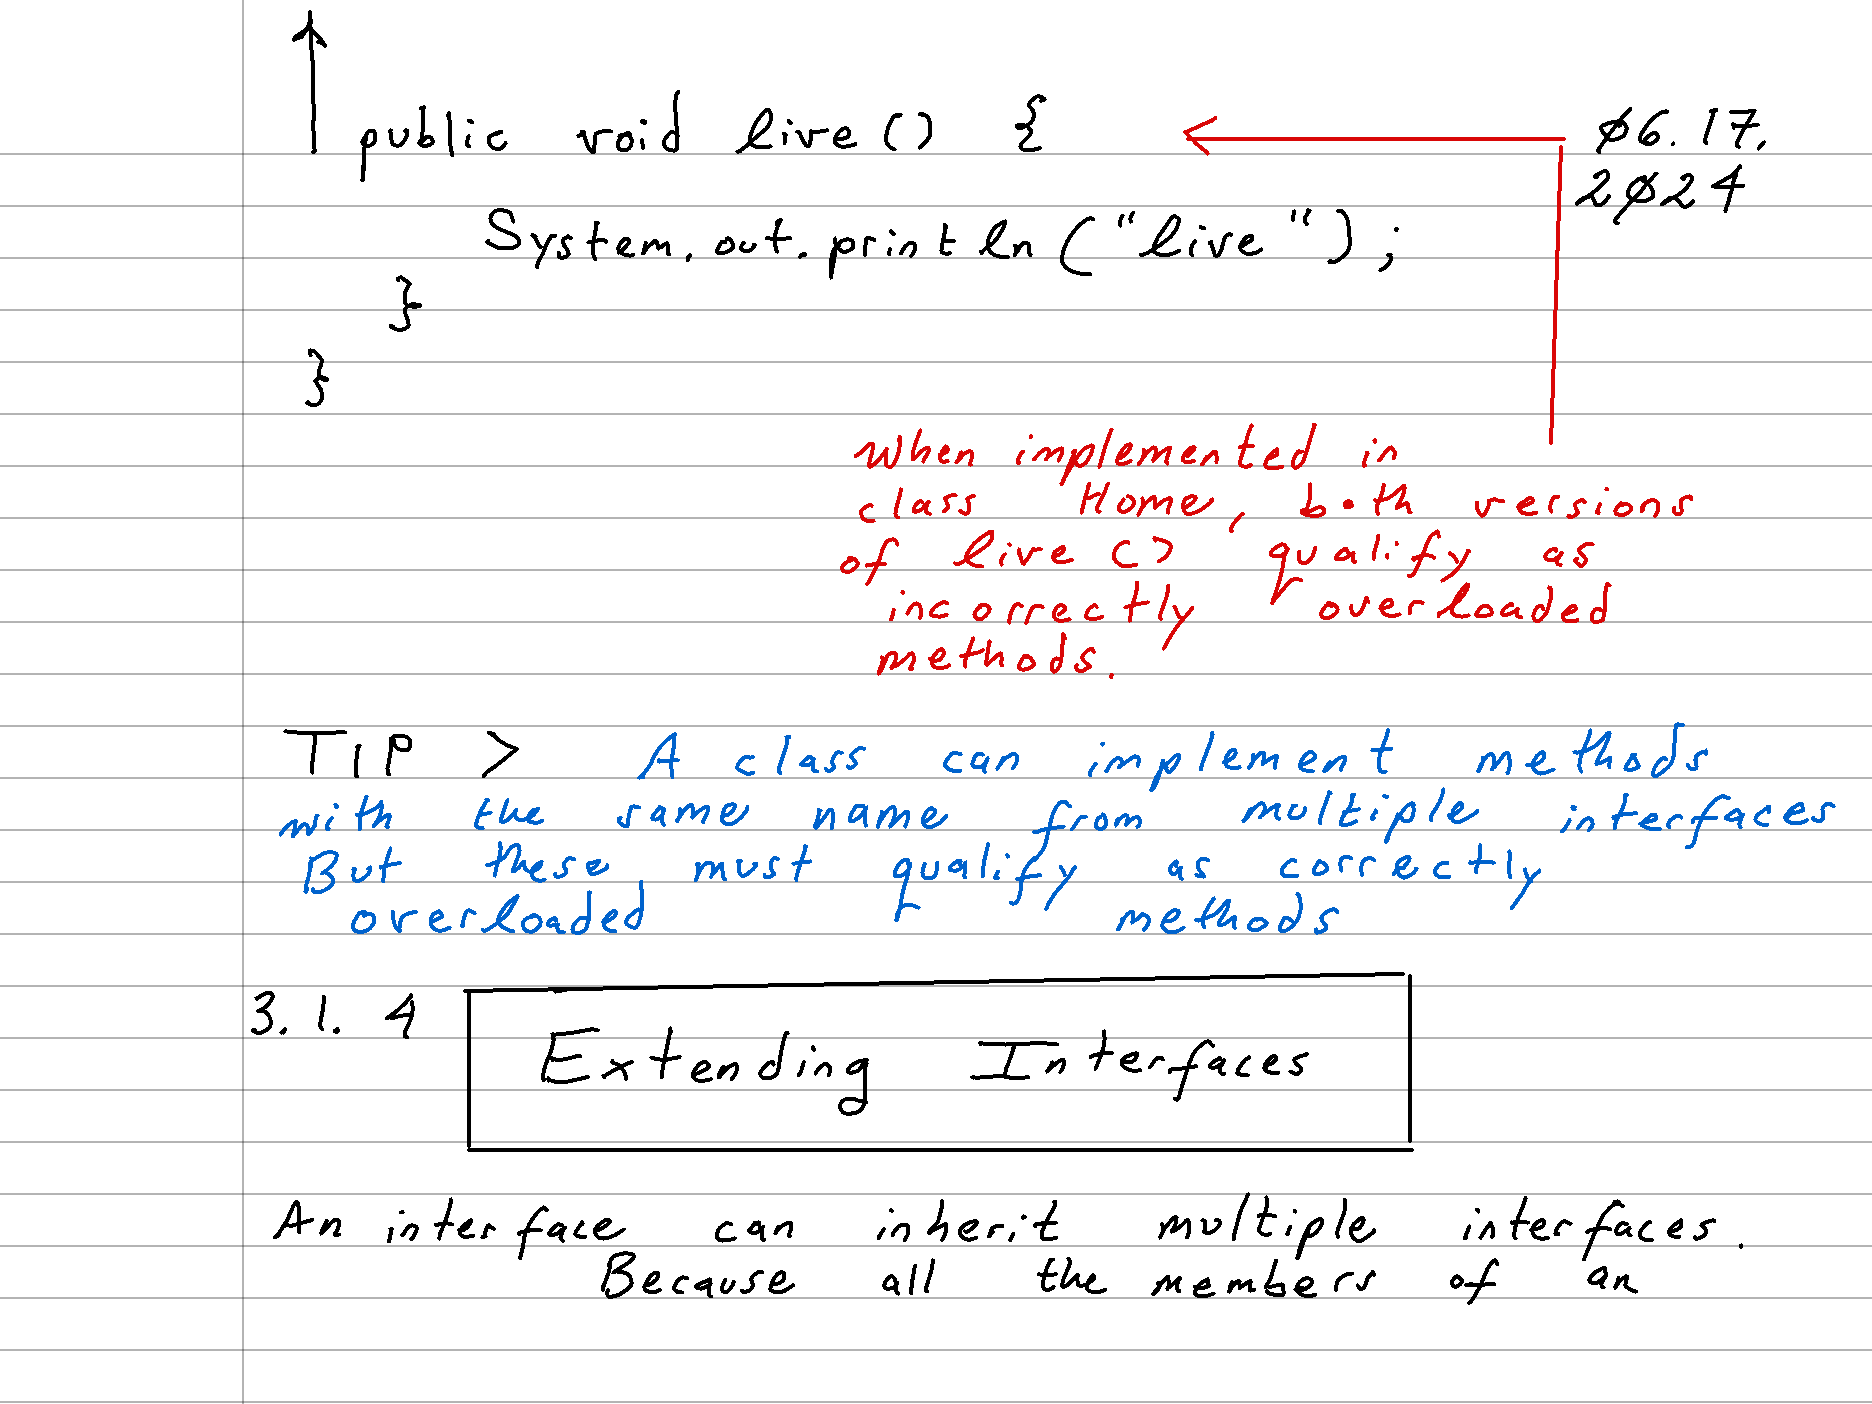 public void live() {
ø6.17.
2ø24
System.out.println("live");
}
}
when implemented in
class Home, both versions
of live() qualify as
incorrectly overloaded
methods.
TIP > A class can implement methods
with the same name from multiple interfaces
But these must qualify as correctly
overloaded methods
3.1.4 Extending Interfaces
An interface can inherit multiple interfaces.
Because all the members of an